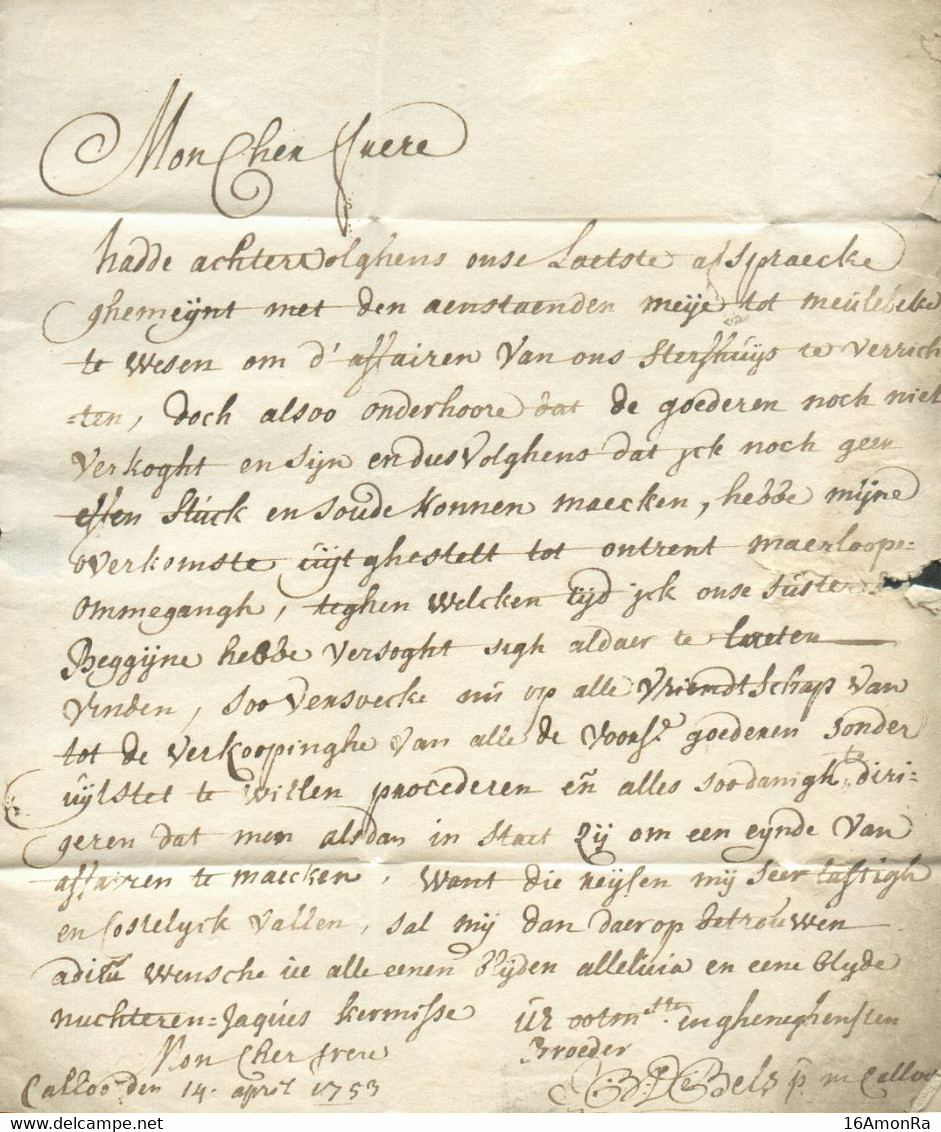 Mon Cher frere
hadde achtervolghens onse Laetste afspraecke
ghemeijnt met den aenstaenden meije tot meulebeke
te Wesen om d'affairen Van ons Sterfhuijs te Verrich
=ten, doch alsoo onderhoore dat de goederen noch niet
Verkoght en sijn en dus Volghens dat jck noch geen
effen Stuck en soude konnen maecken, hebbe mijne
overkomste uijtghestelt tot ontrent maerloop=
Ommegangh, teghen Welcken tijd jck onse suster
Beggijne hebbe Versoght sigh aldaer te laeten
Vinden, soo Versoecke nu op alle Vriendtschap Van
tot de Verkoopinghe Van alle de Voors. goederen sonder
uijtstel te Willen procederen en alles soodanigh te diri=
geren dat men alsdan in staet Zij om een eynde Van
affairen te maecken, Want die reijsen mij seer lastigh
en Costelyck Vallen, sal mij dan daer op betrouwen
adieu Wensche ue alle eenen blijden alleluia en eene blyde
nuchteren=Jaques kermisse Ur ootm en gheneghensten
Mon Cher frere Broeder
Calloo den 14. april 1753 Bels p. in Calloo
16AmonRa